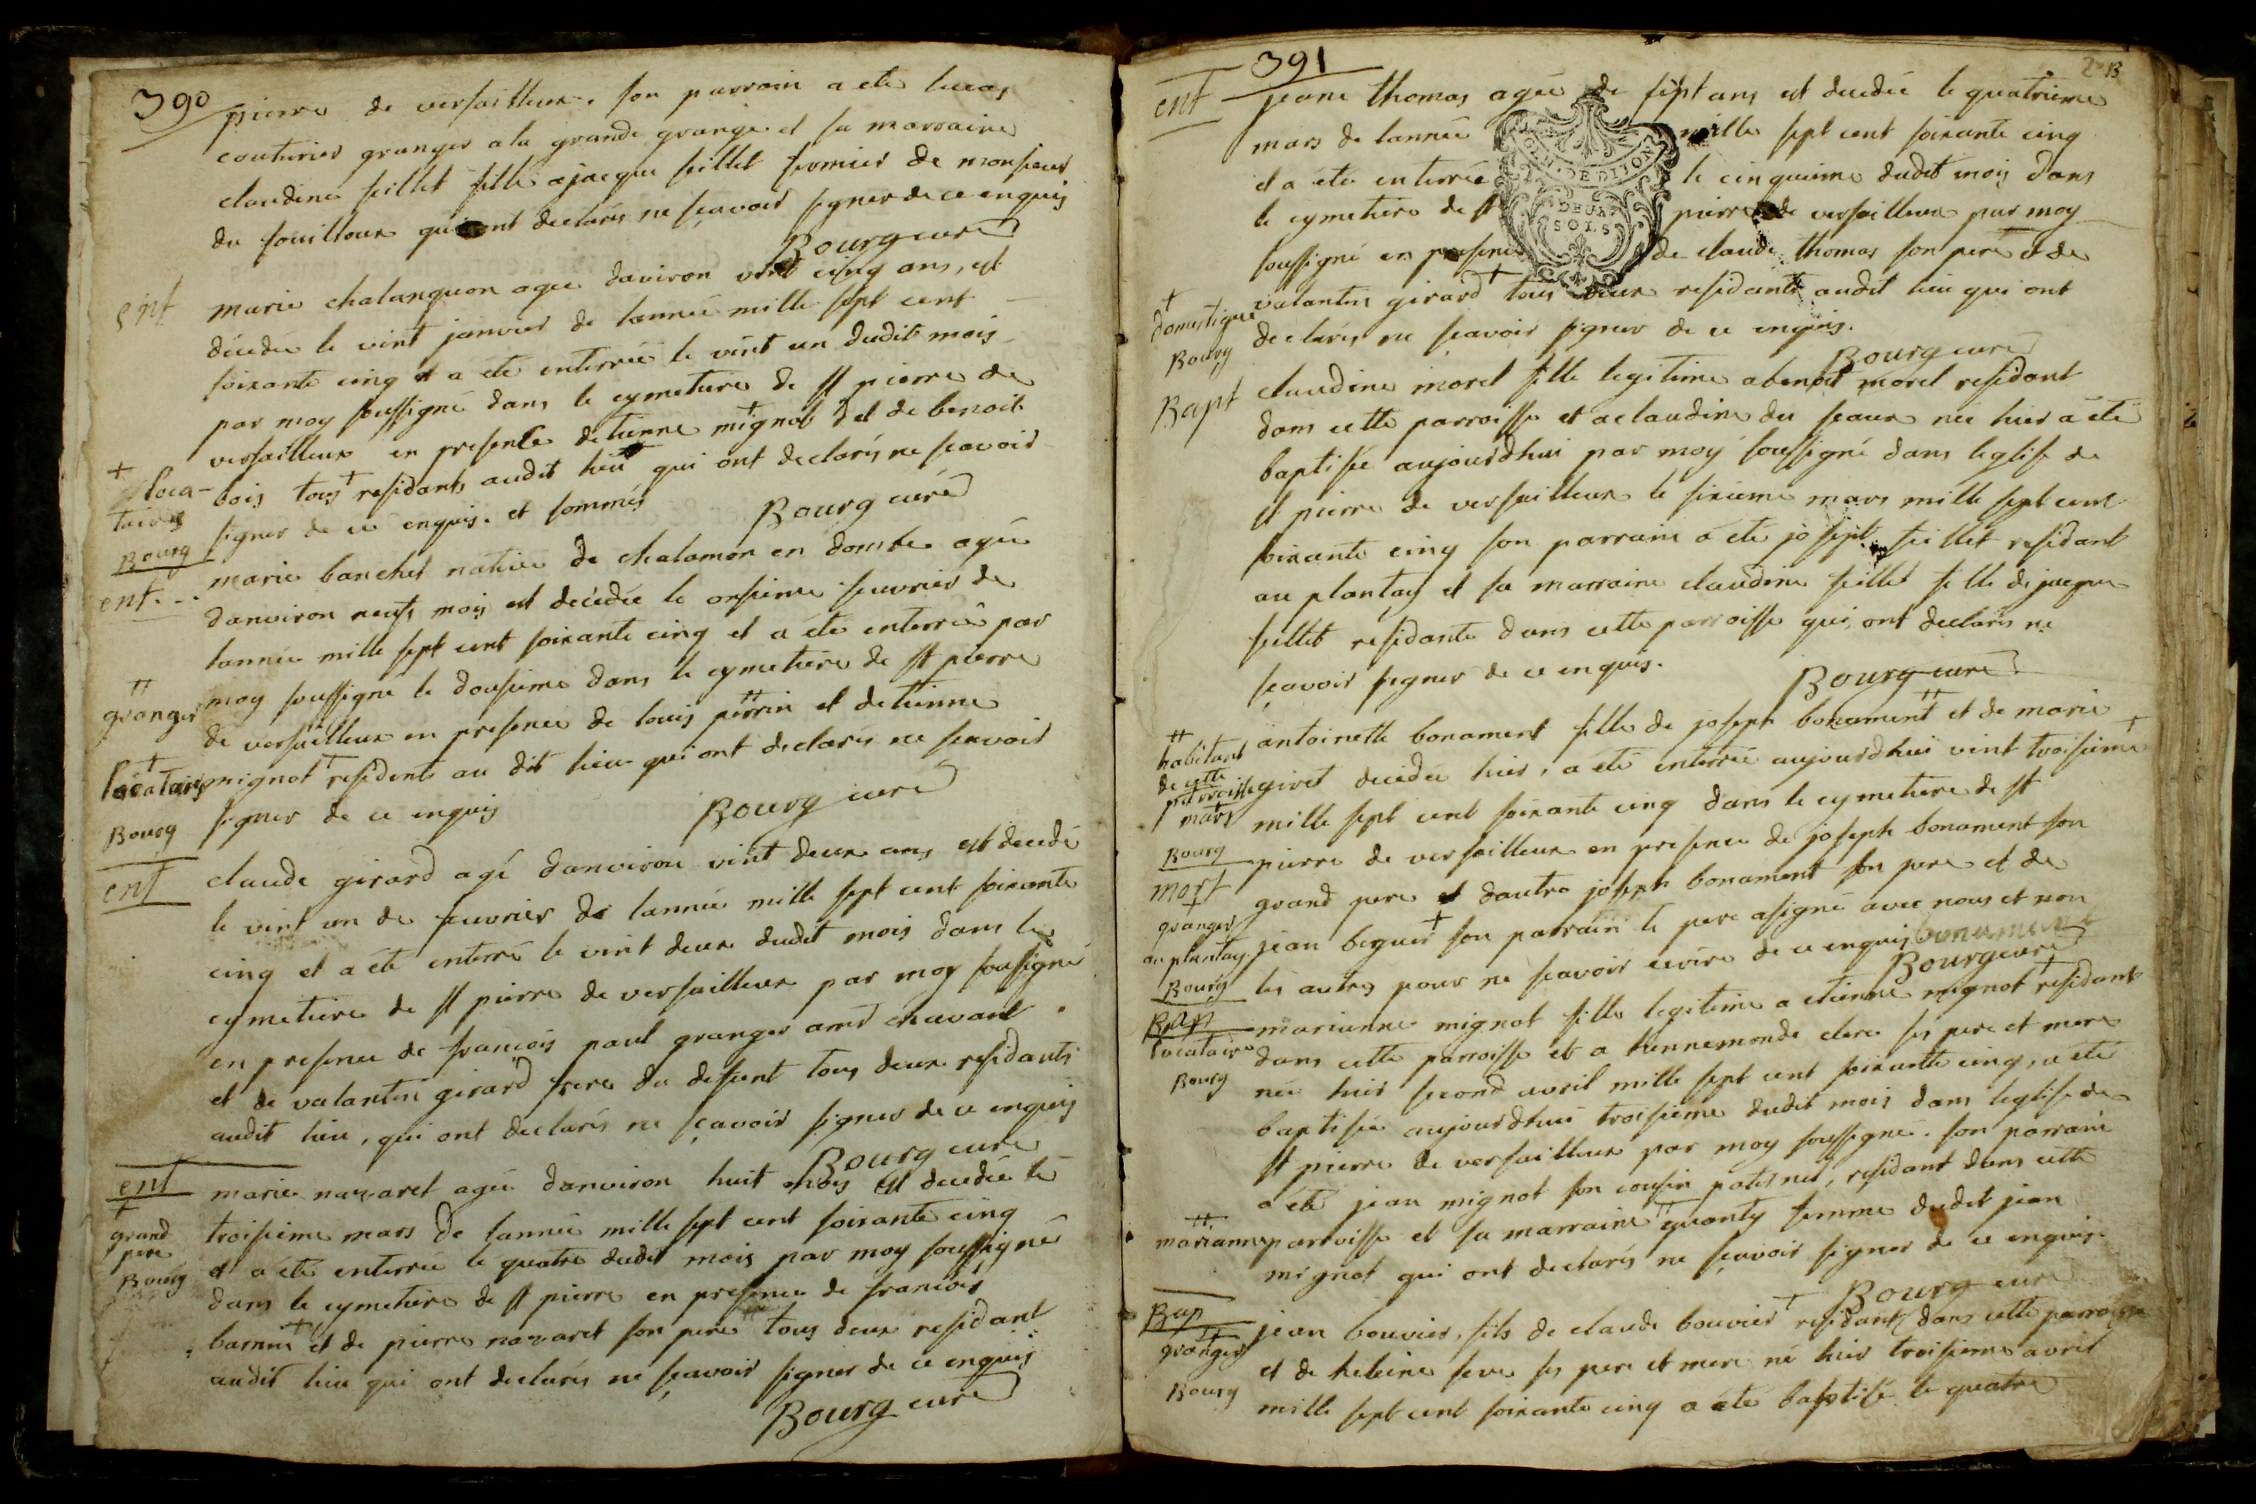 390
pierre de versailleux. son parrain a eté lucas
couturier granger a la grande grange et sa marraine
claudine feillet fille a jacque feillet fermier de monsieur
du fouilloux qui ont declarés ne sçavoir signer de ce enquis
Bourg curé
ent
marie chalanqueon agee danviron vint cinq ans, est
décedee le vint janvier de lannée mille sept cent
soixante cinq et a eté enterreé le vint un dudit mois
par moy soussigné dans le cymetiere de st pierre de
versailleux en presence detienne mignot + et de benoit
+ loca-
taires
Bourg
bois tous + residants audit lieu qui ont declarés ne scavoir
signer de ce enquis. et sommés
Bourg curé
ent...
marie banchet native de chalamon en dombe agée
danviron neufs mois est decedée le onsieme fevrier de
lannée mille sept cent soixante cinq et a eté enterrée par
moy soussigné le dousieme dans le cymetiere de st pierre
++
granger
de versailleux en presence de louis perrin ++ et detienne
+
locataire
Bourg
mignot + residents au dit lieu qui ont declarés ne scavoir
signer de ce enquis
Bourg curé
ent
claude girard agé danviron vint deux ans est decedé
le vint un de feuvrier de lannée mille sept cent soixante
cinq et a eté enterré le vint deux dudit mois dans le
cymetiere de st pierre de versailleux par moy sousigné
en presence de francois paul granger
et de valantin girard frere du defunt tous deux residants
audit lieu, qui ont declarés ne sçavoir signer de ce enquis
Bourg curé
ent
marie nazaret agée danviron huit mois est decedée le
+
grand
pere
Bourg
troisieme mars de lannée mille sept cent soixante cinq
et a eté enterrée le quatre dudit mois par moy soussigné
dans le cymetiere de st pierre en presence de francois
barnin + et de pierre nazaret son pere tous deux residant
audit lieu qui ont declarés ne sçavoir signer de ce enquis
Bourg curé
391
ent
jeane thomas agée de sept ans est decedée le quatrieme
mars de lannée mille sept cent soixante cinq
GEN. DE DIJON
DEUX
SOLS
et a eté enterrée le cinquieme dudit mois dans
le cymetiere de st pierre de versailleux par moy
soussigné en presence de claude thomas son pere et de
+
domestique
Bourg
valantin girard + tous deux residants audit lieu qui ont
declarés ne scavoir signer de ce enquis.
Bourg curé
Bapt
claudine morel fille legitime a benoit morel residant
dans cette parroisse et a claudine du seaux née hier a eté
baptisée aujourdhui par moy soussigné dans leglise de
st pierre de versailleux le sixieme mars mille sept cent
soixante cinq son parrain a eté josept feillet residant
au plantay et sa marraine claudine feillet fille de jacque
feillet residante dans cette parroisse qui ont declarés ne
scavoir signer de ce enquis.
Bourg curé
++
habitant
de cette
parroisse
+
mars
Bourg
antoinette bonament fille de joseph bonament ++ et de marie
givet decedée hier, a eté enterrée aujourdhui vint troisieme +
mille sept cent soixante cinq dans le cymetiere de st
pierre de versailleux en presence de joseph bonament son
mort
+
granger
au plantay
Bourg
grand pere et dautre joseph bonament son pere et de
jean beguet + son parrain le pere a signé avec nous et non
les autres pour ne scavoir ecrire de ce enquis bonament
Bourg curé
Bap
+
locataire
Bourg
marianne mignot fille legitime a etienne mignot + residant
dans cette parroisse et a hennemonde clere ses pere et mere
née hier second avril mille sept cent soixante cinq, a eté
baptisée aujourdhui troisieme dudit mois dans leglise de
st pierre de versailleux par moy soussigné. son parrain
a eté jean mignot son cousin paternel, residant dans cette
++
marianne
parroisse et sa marraine ++ quanty femme dudit jean
mignot qui ont declarés ne sçavoir signer de ce enquis.
Bourg curé
Bap
++
granger
Bourg
jean bouvier, fils de claude bouvier + residant dans cette parroisse
et de heleine seve ses pere et mere né hier troisieme avril
mille sept cent soixante cinq a eté baptisé le quatre